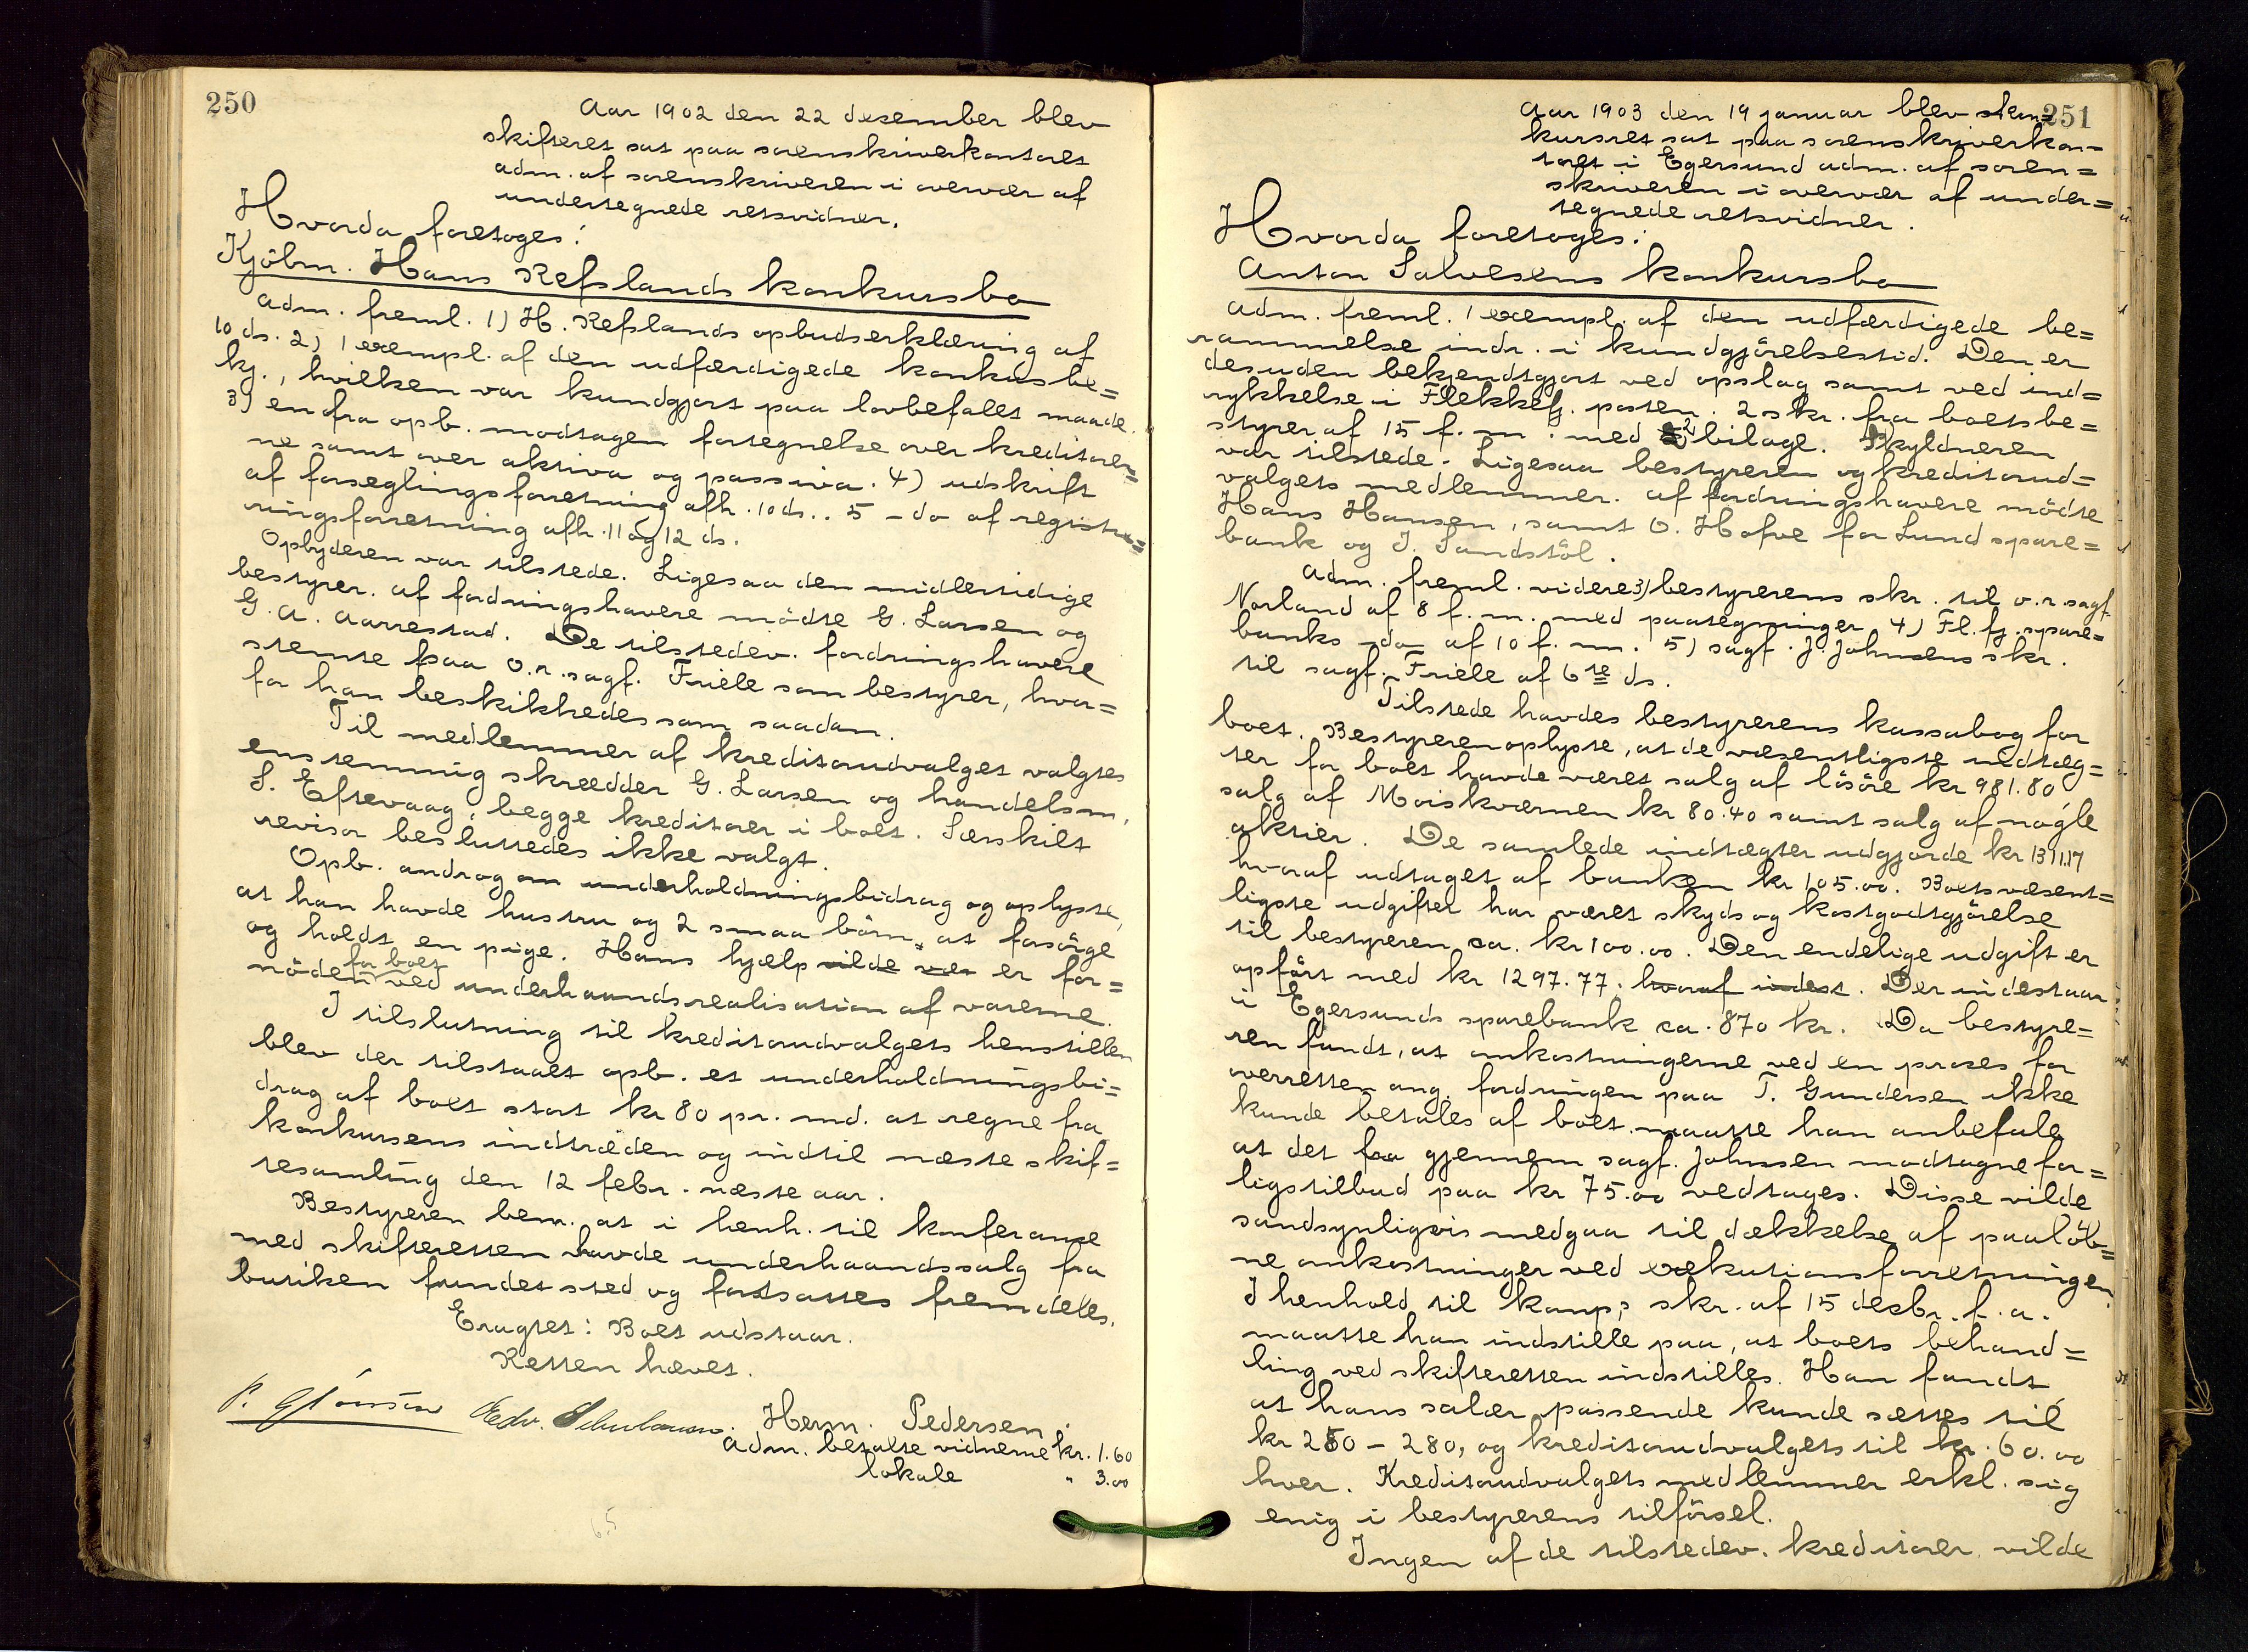 250
Aar 1902 den 22 desember blev
skifteret sat paa sorenskriverkontoret
adm. af sorenskriveren i overvær af
undertegnede retsvidner.
Hvorda foretoges:
Kjöbm. Hans Refslands konkursbo
Adm. freml. 1) H. Refslands opbudserklæring af
10 ds. 2) 1 exempl. af den udfærdigede konkursbe=
kj., hvilken var kundgjort paa lovbefalet maade.
3) en fra opb. modtagen fortegnelse over kreditorer=
ne samt over aktiva og passiva. 4) udskrift
af forseglingsforretning afh. 10 ds.. 5 - do af registre=
ringsforretning afh. 11 og 12 ds.
Opbyderen var tilstede. Ligesaa den midlertidige
bestyrer. af fordringshavere mödte G. Larsen og
G. A. Aarrestad. De tilstedev. fordringshavere
stemte paa o.r.sagf. Friele som bestyrer, hvor=
for han beskikkedes som saadan.
Til medlemmer af kreditorudvalget valgtes
enstemmig skrædder G. Larsen og handelsm.
S. Eftevaag, begge kreditorer i boet. Særskilt
revisor besluttedes ikke valgt.
Opb. androg om underholdningsbidrag og oplyste,
at han havde hustru og 2 smaa börn at forsörge
og holdt en pige. Hans hjælp vilde vær er for=
nöden for boet ved underhaandsrealisation af varerne.
I tilslutning til kreditorudvalgets henstillen
blev der tilstaaet opb. et underholdningsbi=
drag af boet stort kr 80 pr. md. at regne fra
konkursens indtræden og indtil næste skif=
tesamling den 12 febr. næste aar.
Bestyreren bem. at i henh. til konferanse
med skifteretten havde underhaandssalg fra
butiken fundet sted og fortsattes fremdeles.
Eragtet: Boet udstaar.
Retten hævet.
Herm. Pedersen.
Adm. betalte vidnerne kr. 1.60
lokale " 3.00
65
251
Aar 1903 den 19 januar blev skon=
kursret sat paa sorenskriverkon-
toret i Egersund adm. af soren=
skriveren i overvær af under=
tegnede retsvidner.
Hvorda foretoges:
Anton Salvesens konkursbo
Adm. freml. 1 exempl. af den udfærdigede be=
rammelse indr. i kundgjörelsestid. Den er
desuden bekjendtgjort ved opslag samt ved ind=
rykkelse i Flekkefj. posten. 2 skr. fra boetsbe=
styrer af 15 f. m. med 2 bilage. Skyldneren
var tilstede. Ligesaa bestyreren og kreditorud=
valgets medlemmer. af fordringshavere mödte
Hans Hansen, samt O. Hofve for Lund spare=
bank og J. Sandstöl.
Adm. freml. videre 3) bestyrerens skr. til o.r.sagf.
Norland af 8 f. m. med paategninger 4) Fl. fj. spare=
banks -do- af 10 f. m. 5) sagf. J. Johnsens skr.
til sagf. Friele af 6te ds.
Tilstede havdes bestyrerens kassabog for
boet. Bestyreren oplyste, at de væsentligste indtæg=
ter for boet havde været salg af lösöre kr 981.80
salg af Moiskvernen kr 80.40 samt salg af nogle
aktier. De samlede indtægter udgjorde kr 1311.17
hvoraf udtaget af banken kr 105.00. Boets væsent=
ligste udgifter har været skyds og kostgodtgjörelse
til bestyreren ca. kr 100.00. Den endelige udgift er
opfört med kr 1297.77. hvoraf indest. Der indestaar
i Egersunds sparebank ca. 870 kr. Da bestyre=
ren fandt, at omkostningerne ved en proces for
overretten ang. fordringen paa T. Gundersen ikke
kunde betales af boet, maatte han anbefale
at det fra gjennem sagf. Johnsen modtagne for=
ligstilbud paa kr 75.00 vedtages. Disse vilde
sandsynligvis medgaa til dækkelse af paalöb=
ne omkostninger ved exekutionsforretningen.
I henhold til komp.s skr. af 15 desbr. f. a.
maatte han indstille paa, at boets behand=
ling ved skifteretten indstilles. Han fandt
at hans salær passende kunde sættes til
kr 250 - 280, og kreditorudvalgets til kr. 60.00
hver. Kreditorudvalgets medlemmer erkl. sig
enig i bestyrerens tilförsel.
Ingen af de tilstedev. kreditorer vilde